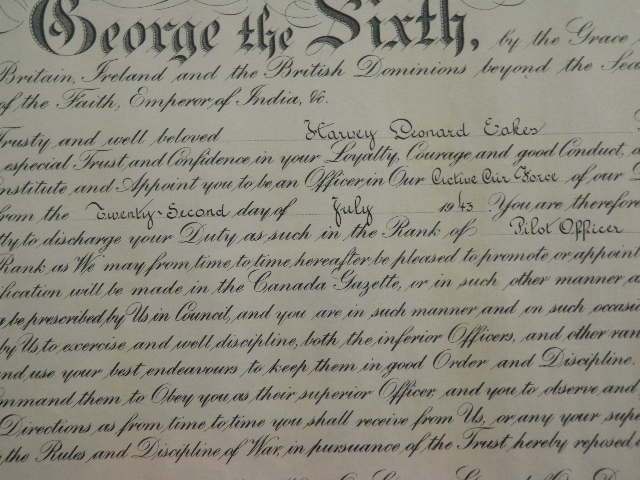 George the Sixth, by the Grace
Britain, Ireland and the British Dominions beyond the Sea
of the Faith, Emperor of India, &c.
Trusty and well beloved Harvey Leonard Eakes
especial Trust and Confidence in your Loyalty, Courage and good Conduct,
nstitute and Appoint you to be an Officer in Our Active Air Force of our
from the Twenty-Second day of July 1943. You are therefore
tly to discharge your Duty as such in the Rank of Pilot Officer
Rank as We may from time to time hereafter be pleased to promote or appoint
ification will be made in the Canada Gazette, or in such other manner a
be prescribed by Us in Council, and you are in such manner and on such occasio
by Us, to exercise and well discipline, both the inferior Officers, and other ran
nd use your best endeavours to keep them in good Order and Discipline.
ommand them to Obey you as their superior Officer, and you to observe and
Directions as from time to time you shall receive from Us, or any your supe
the Rules and Discipline of War, in pursuance of the Trust hereby reposed